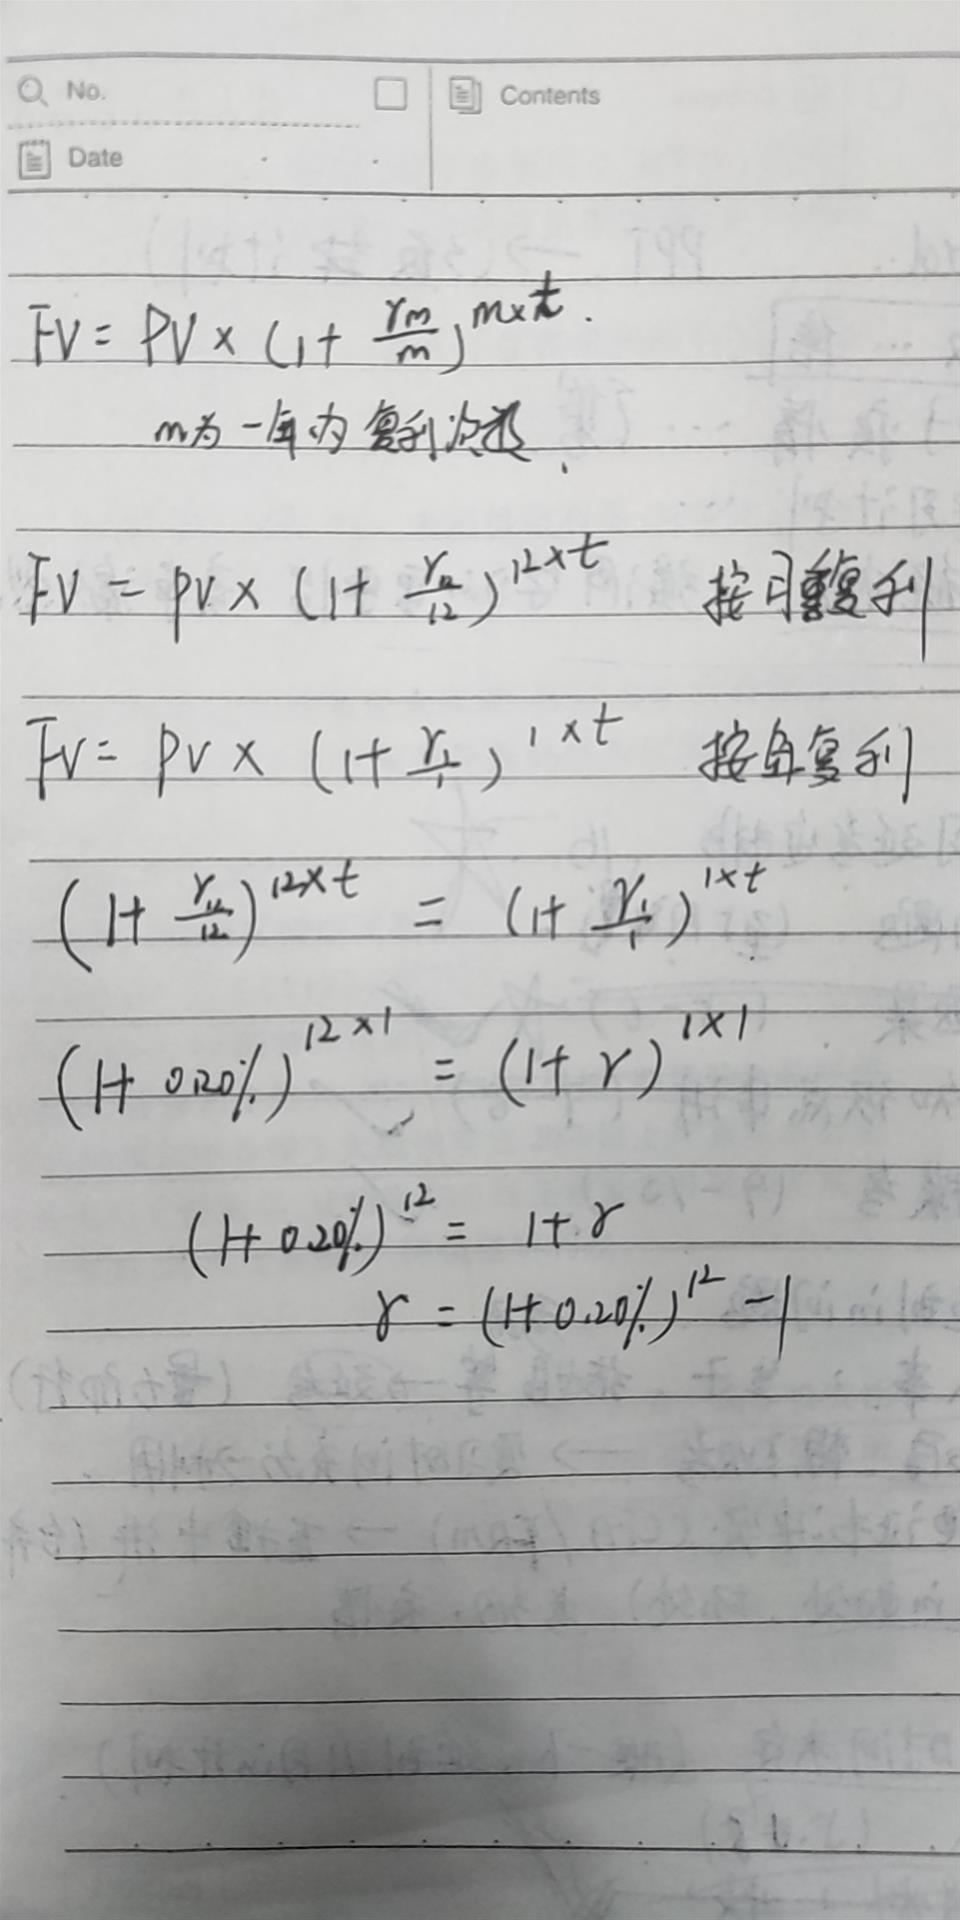 No.
Contents
Date
FV = PV × (1 + rm/m)^m×t.
m为一年内复利次数.
FV = PV × (1 + r12/12)^12×t 按月复利
FV = PV × (1 + r1/1)^1×t 按年复利
(1 + r12/12)^12×t = (1 + r1/1)^1×t
(1 + 0.20%)^12×1 = (1 + r)^1×1
(1 + 0.20%)^12 = 1 + r
r = (1 + 0.20%)^12 − 1